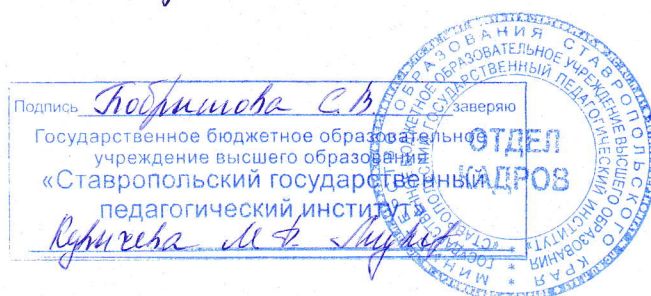 Подпись Бобрышова С.В. заверяю
Государственное бюджетное образовательное
учреждение высшего образования
«Ставропольский государственный
педагогический институт»
ОТДЕЛ
КАДРОВ
ОБРАЗОВАНИЯ СТАВРОПОЛЬСКОГО КРАЯ
БЮДЖЕТНОЕ ОБРАЗОВАТЕЛЬНОЕ УЧРЕЖДЕНИЕ ВЫСШЕГО ОБРАЗОВАНИЯ
ГОСУДАРСТВЕННЫЙ ПЕДАГОГИЧЕСКИЙ ИНСТИТУТ»